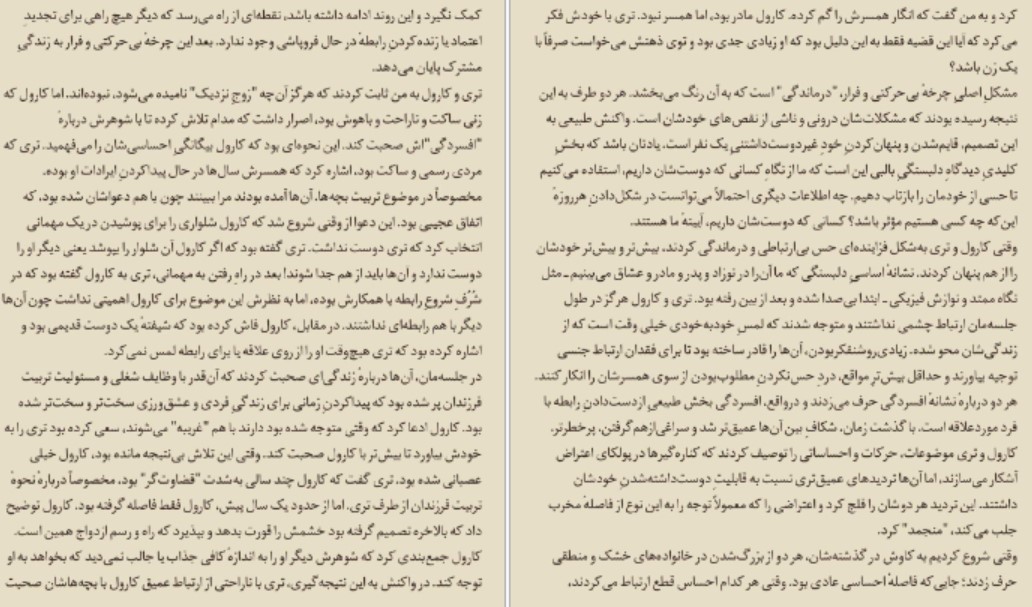 کمک نگیرد و این روند ادامه داشته باشد، نقطه‌ای از راه می‌رسد که دیگر هیچ راهی برای تجدیدِ
اعتماد یا زنده‌کردنِ رابطهٔ در حال فروپاشی وجود ندارد. بعد این چرخهٔ بی‌حرکتی و فرار به زندگیِ
مشترک پایان می‌دهد.
تری و کارول به من ثابت کردند که هرگز آن‌چه "زوجِ نزدیک" نامیده می‌شود، نبوده‌اند. اما کارول که
زنی ساکت و ناراحت و باهوش بود، اصرار داشت که مدام تلاش کرده تا با شوهرش دربارهٔ
"افسردگی"‌اش صحبت کند. این نحوه‌ای بود که کارول بیگانگیِ احساسی‌شان را می‌فهمید. تری که
مردی رسمی و ساکت بود، اشاره کرد که همسرش سال‌ها در حال پیداکردنِ ایرادات او بوده.
مخصوصاً در موضوع تربیت بچه‌ها. آن‌ها آمده بودند مرا ببینند چون با هم دعواشان شده بود، که
اتفاق عجیبی بود. این دعوا از وقتی شروع شد که کارول شلواری را برای پوشیدن در یک مهمانی
انتخاب کرد که تری دوست نداشت. تری گفته بود که اگر کارول آن شلوار را بپوشد یعنی دیگر او را
دوست ندارد و آن‌ها باید از هم جدا شوند! بعد در راهِ رفتن به مهمانی، تری به کارول گفته بود که در
شُرُفِ شروع رابطه با همکارش بوده، اما به نظرش این موضوع برای کارول اهمیتی نداشت چون آن‌ها
دیگر با هم رابطه‌ای نداشتند. در مقابل، کارول فاش کرده بود که شیفتهٔ یک دوست قدیمی بود و
اشاره کرده بود که تری هیچ‌وقت او را از روی علاقه یا برای رابطه لمس نمی‌کرد.
در جلسه‌مان، آن‌ها دربارهٔ زندگی‌ای صحبت کردند که آن‌قدر با وظایف شغلی و مسئولیت تربیت
فرزندان پر شده بود که پیداکردنِ زمانی برای زندگیِ فردی و عشق‌ورزی سخت‌تر و سخت‌تر شده
بود. کارول ادعا کرد که وقتی متوجه شده بود دارند با هم "غریبه" می‌شوند، سعی کرده بود تری را به
خودش بیاورد تا بیش‌تر با کارول صحبت کند. وقتی این تلاش بی‌نتیجه مانده بود، کارول خیلی
عصبانی شده بود. تری گفت که کارول چند سالی به‌شدت "قضاوت‌گر" بود، مخصوصاً دربارهٔ نحوهٔ
تربیت فرزندان از طرف تری. اما از حدود یک سال پیش، کارول فقط فاصله گرفته بود. کارول توضیح
داد که بالاخره تصمیم گرفته بود خشمش را قورت بدهد و بپذیرد که راه و رسم ازدواج همین است.
کارول جمع‌بندی کرد که شوهرش دیگر او را به اندازهٔ کافی جذاب یا جالب نمی‌دید که بخواهد به او
توجه کند. در واکنش به این نتیجه‌گیری، تری با ناراحتی از ارتباط عمیق کارول با بچه‌هاشان صحبت
کرد و به من گفت که انگار همسرش را گم کرده. کارول مادر بود، اما همسر نبود. تری با خودش فکر
می‌کرد که آیا این قضیه فقط به این دلیل بود که او زیادی جدی بود و توی ذهنش می‌خواست صرفاً با
یک زن باشد؟
مشکلِ اصلیِ چرخهٔ بی‌حرکتی و فرار، "درماندگی" است که به آن رنگ می‌بخشد. هر دو طرف به این
نتیجه رسیده بودند که مشکلات‌شان درونی و ناشی از نقص‌های خودشان است. واکنش طبیعی به
این تصمیم، قایم‌شدن و پنهان‌کردنِ خودِ غیردوست‌داشتنیِ یک نفر است. یادتان باشد که بخش
کلیدیِ دیدگاهِ دلبستگیِ بالبی این است که ما از نگاهِ کسانی که دوست‌شان داریم، استفاده می‌کنیم
تا حسی از خودمان را بازتاب دهیم. چه اطلاعات دیگری احتمالاً می‌توانست در شکل‌دادنِ هرروزهٔ
این‌که چه کسی هستیم مؤثر باشد؟ کسانی که دوست‌شان داریم، آیینهٔ ما هستند.
وقتی کارول و تری به‌شکل فزاینده‌ای حس بی‌ارتباطی و درماندگی کردند، بیش‌تر و بیش‌تر خودشان
را از هم پنهان کردند. نشانهٔ اساسیِ دلبستگی که ما آن‌را در نوزاد و پدر و مادر و عشاق می‌بینیم ـ مثل
نگاه ممتد و نوازش فیزیکی ـ ابتدا بی‌صدا شده و بعد از بین رفته بود. تری و کارول هرگز در طول
جلسه‌مان ارتباط چشمی نداشتند و متوجه شدند که لمسِ خودبه‌خودی خیلی وقت است که از
زندگی‌شان محو شده. زیادی‌روشنفکربودن، آن‌ها را قادر ساخته بود تا برای فقدان ارتباط جنسی
توجیه بیاورند و حداقل بیش‌ترِ مواقع، دردِ حس‌نکردنِ مطلوب‌بودن از سوی همسرشان را انکار کنند.
هر دو دربارهٔ نشانهٔ افسردگی حرف می‌زدند و درواقع، افسردگی بخش طبیعیِ ازدست‌دادنِ رابطه با
فرد موردعلاقه است. با گذشت زمان، شکافِ بین آن‌ها عمیق‌تر شد و سراغی‌ازهم‌گرفتن، پرخطرتر.
کارول و تری موضوعات، حرکات و احساساتی را توصیف کردند که کناره‌گیرها در پولکای اعتراض
آشکار می‌سازند، اما آن‌ها تردیدهای عمیق‌تری نسبت به قابلیتِ دوست‌داشته‌شدنِ خودشان
داشتند. این تردید هر دوشان را فلج کرد و اعتراضی را که معمولاً توجه را به این نوع از فاصلهٔ مخرب
جلب می‌کند، "منجمد" کرد.
وقتی شروع کردیم به کاوش در گذشته‌شان، هر دو از بزرگ‌شدن در خانواده‌های خشک و منطقی
حرف زدند؛ جایی‌که فاصلهٔ احساسی عادی بود. وقتی هر کدام احساس قطع ارتباط می‌کردند،